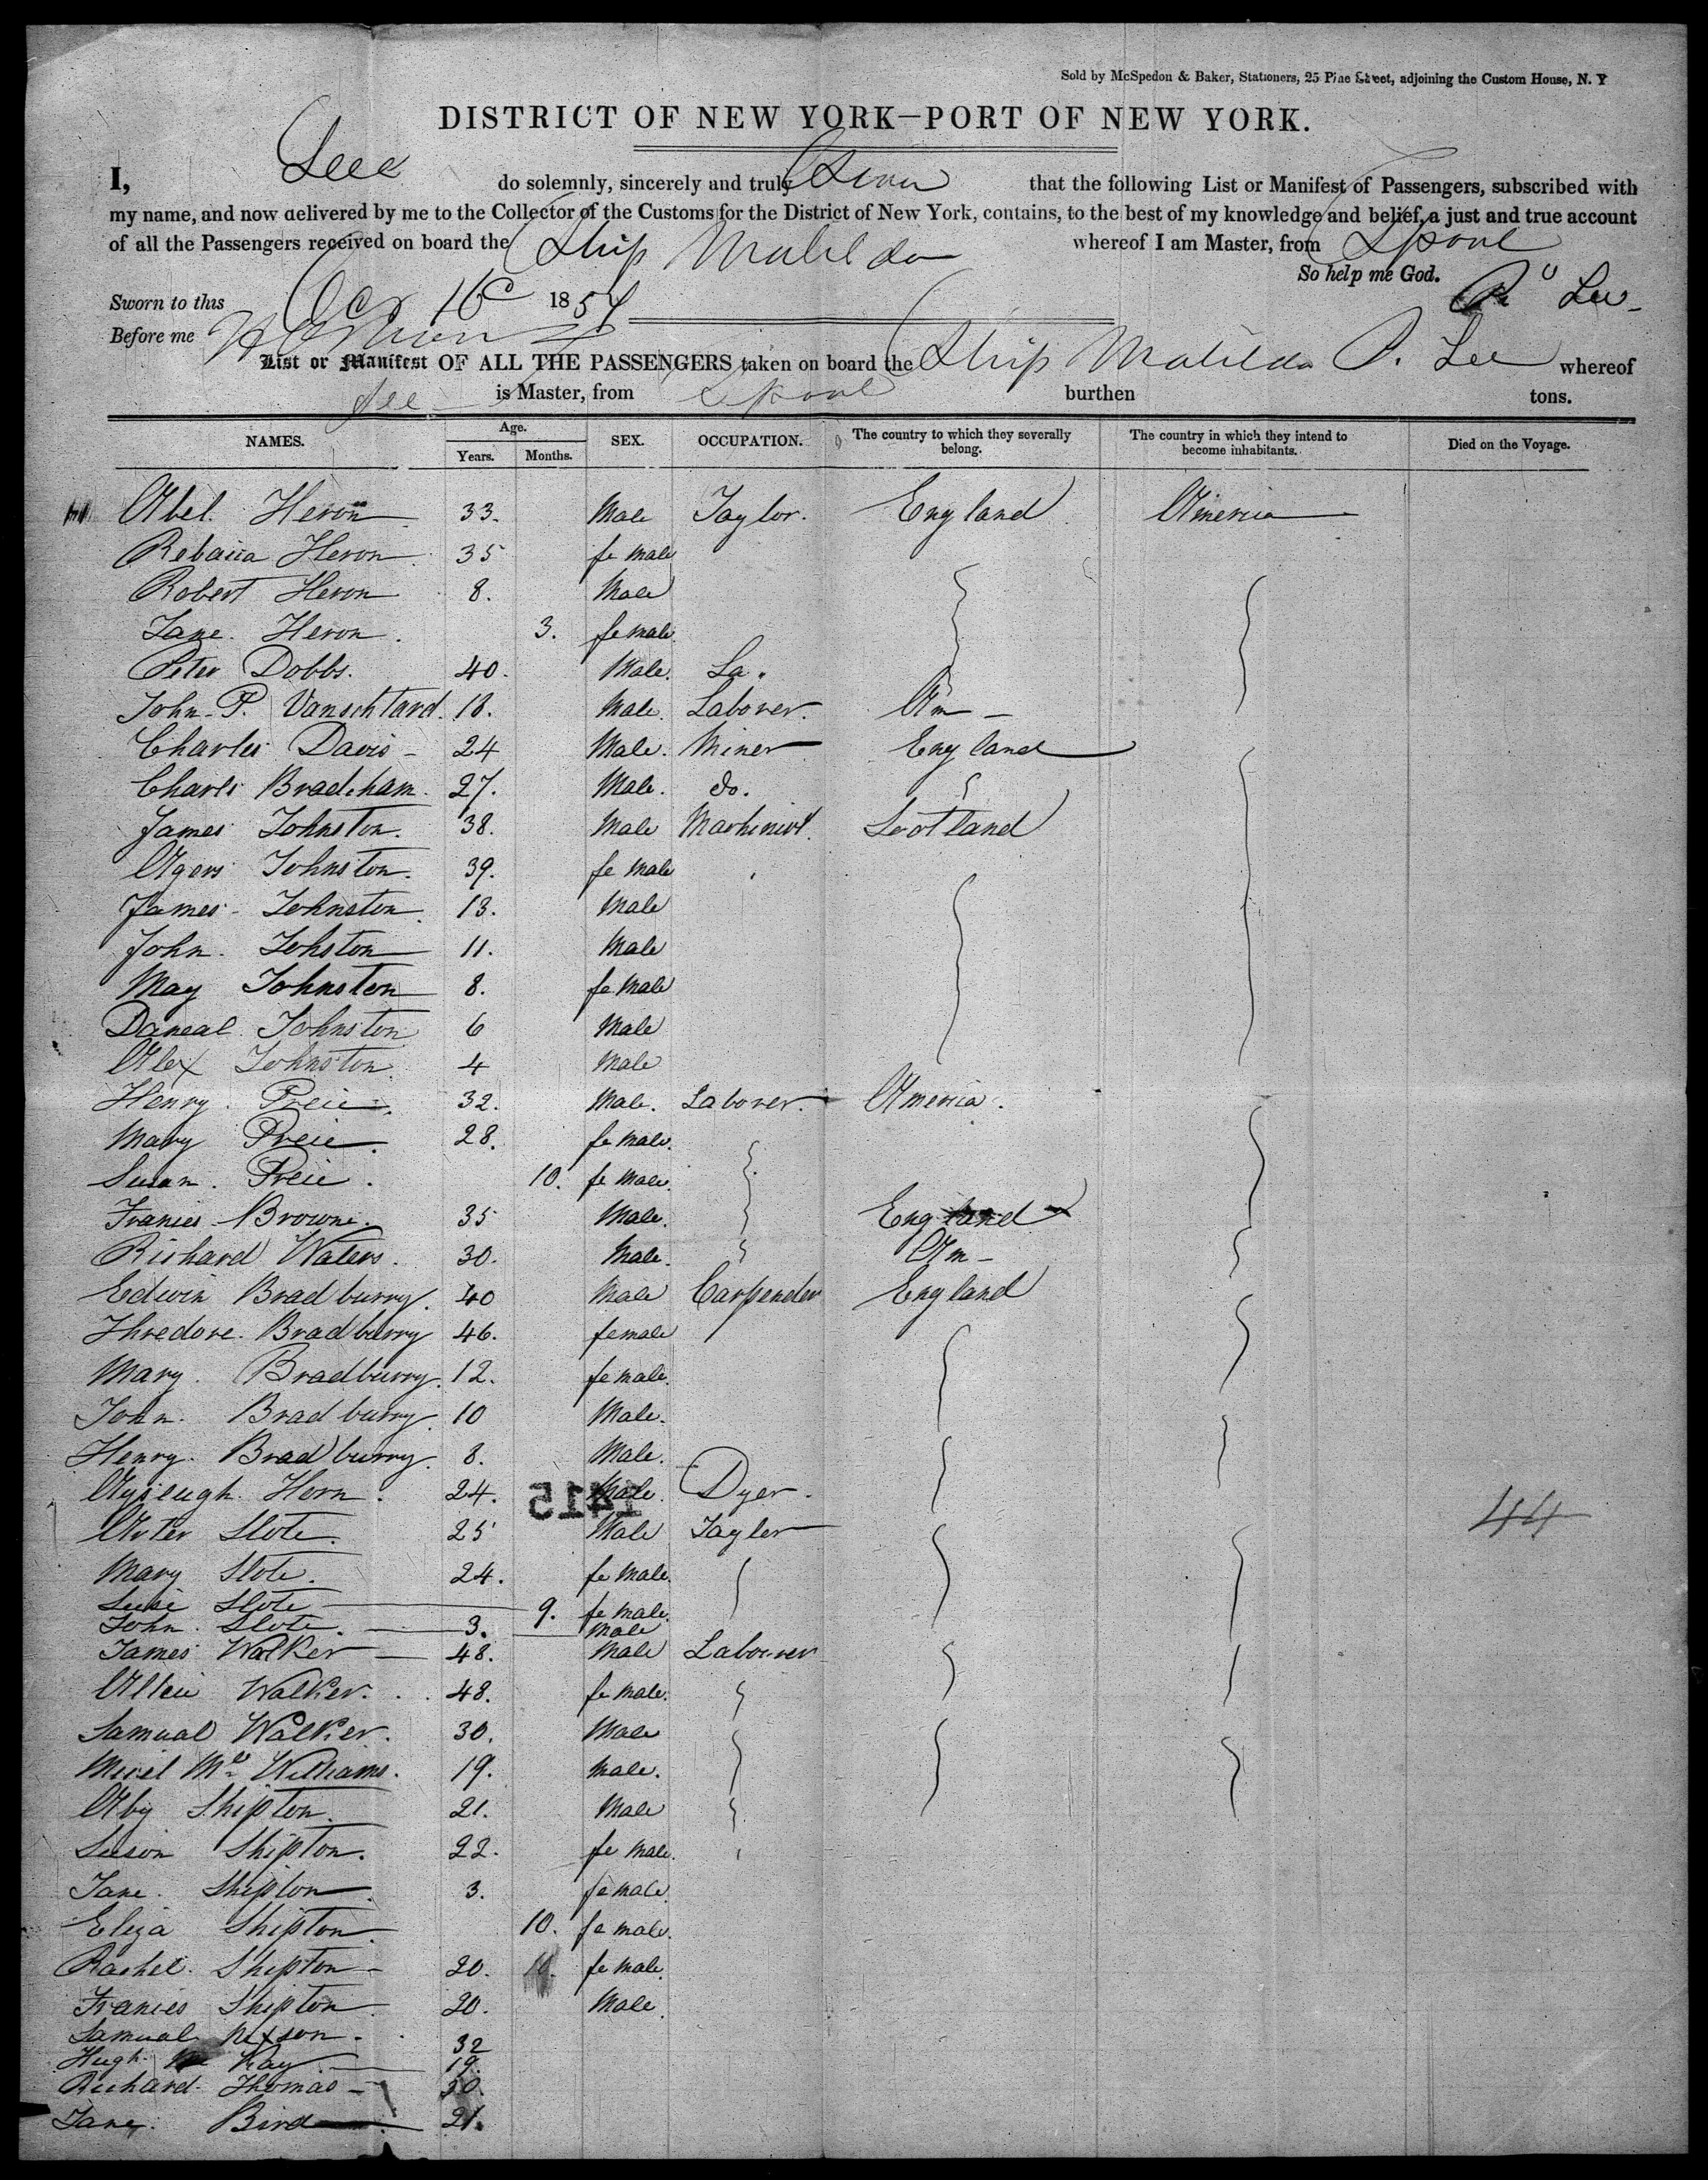 Sold by McSpedon & Baker, Stationers, 25 Pine Street, adjoining the Custom House, N. Y
DISTRICT OF NEW YORK—PORT OF NEW YORK.
I, Lee do solemnly, sincerely and truly Swear that the following List or Manifest of Passengers, subscribed with
my name, and now delivered by me to the Collector of the Customs for the District of New York, contains, to the best of my knowledge and belief, a just and true account
of all the Passengers received on board the Ship Matilda whereof I am Master, from Lpool
So help me God.
Sworn to this Oct 16 1854 Lee
Before me
List or Manifest OF ALL THE PASSENGERS taken on board the Ship Matilda P. Lee whereof
Lee is Master, from Lpool burthen tons.
NAMES. Age. Years. Months. SEX. OCCUPATION. The country to which they severally belong. The country in which they intend to become inhabitants. Died on the Voyage.
Abel Heron 33. Male Taylor. England America
Rebacca Heron 35 female
Robert Heron 8. Male
Jane Heron. 3. female
Peter Dobbs. 40. Male. La.
John P. Vanschtard. 18. Male. Laborer. Am
Charles Davis 24 Male. Miner England
Charls Bradcham. 27. Male. do.
James Johnston. 38. Male Machinist Scotland
Agers Johnston. 39. female
James Johnston 13. Male
John Johston 11. Male
May Johnston 8. female
Daneal Johnston 6 Male
Alex Johnston 4 Male
Henry Preic. 32. Male. Laborer. America.
Mary Preic. 28. female.
Susan Preic. 10. female.
Francis Browne. 35 Male. England
Richard Waters. 30. Male. Am
Edwin Bradburry. 40 Male Carpender England
Thredore Bradburry 46. female
Mary Bradburry. 12. female.
John Bradburry 10 Male.
Henry Bradburry. 8. Male.
Horn. 24. Male. Dyer.
1415
Arter Slote. 25 Male Tayler
44
Mary Slote. 24. female.
Susie Slote 9. female.
John Slote. 3. Male
James Walker 48. Male Labourer
Allice Walker. 48. female.
Samual Walker. 30. Male
McWilliams. 19. Male.
Aby Shipton. 21. Male
Suson Shipton. 22. female.
Jane Shipton 3. female.
Eliza Shipton. 10. female.
Rachel Shipton 20. 10. female.
Francis Shipton 20. Male.
Samual Nixson. 32
Hugh Mc Kay 19.
Richard Thomas 30.
Jane Bird 21.